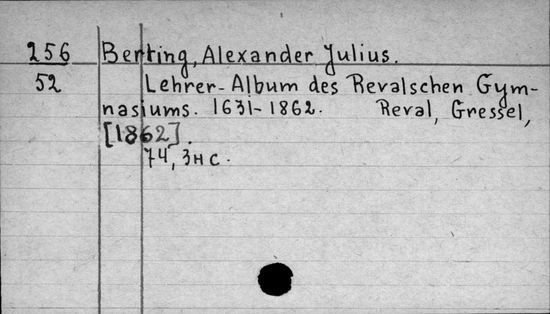 256 Berting, Alexander Julius.
52 Lehrer-Album des Revalschen Gym-
nasiums. 1631-1862. Reval, Gressel,
[1862].
74, 3нс.